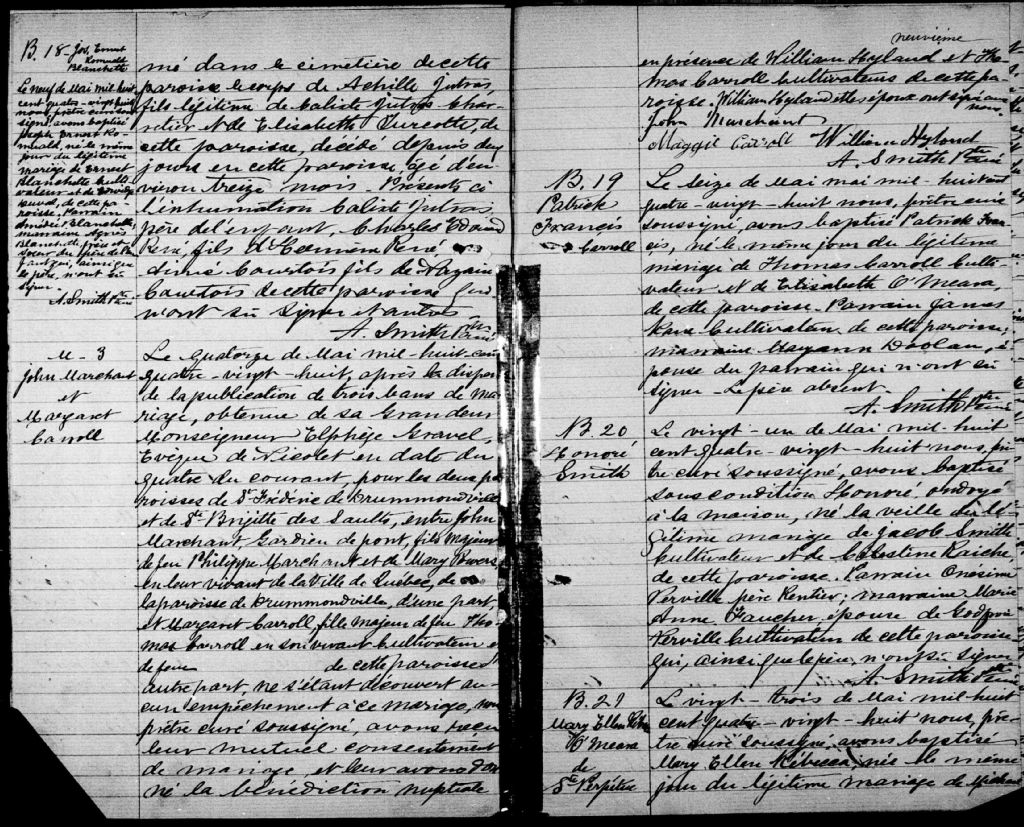 B. 18 - Jos. Ernest
Romuald
Blanchette
Le neuf de Mai mil huit
cent quatre-vingt-huit
nous, prêtre curé sous-
signé, avons baptisé
Joseph Ernest Ro-
muald, né le même
jour du légitime
mariage de Ernest
Blanchette culti-
vateur et de
de cette pa-
roisse. Parrain
Amédée Blanchette,
marraine Agnès
Blanchette, frère et
soeur du père de l'en-
fant qui, ainsi que
le père, n'ont su
signer
A. Smith Ptre
mé dans le cimetière de cette
paroisse le corps de Achille Jutras,
fils légitime de Caliste Jutras Char-
retier et de Elisabeth Turcotte, de
cette paroisse, décédé depuis deux
jours en cette paroisse âgé d'en-
viron treize mois. Présents à
l'inhumation Caliste Jutras
père de l'enfant, Charles Edouard
René, fils d'Herménie René
dimé Courtois fils de
Courtois de cette paroisse qui
n'ont su signer
A. Smith Ptre Curé
M - 3
John Marchant
et
Margaret
Carroll
Le quatorze de Mai mil-huit-cent
quatre-vingt-huit, après la dispense
de la publication de trois bans de ma-
riage, obtenue de sa Grandeur
Monseigneur Elphège Gravel,
Evêque de Nicolet en date du
quatre du courant, pour les deux pa-
roisses de St Frédéric de Drummondville
et de Ste Brigitte des Saults, entre John
Marchant, Gardien de pont, fils majeur
de feu Philippe Marchant et de Mary Powers
en leur vivant de la Ville de Québec, de
la paroisse de Drummondville, d'une part,
et Margaret Carroll, fille majeur de feu Tho-
mas Carroll en son vivant cultivateur et
de feue de cette paroisse d'
autre part, ne s'étant découvert au-
cun empêchement à ce mariage, nous
prêtre curé soussigné, avons reçu
leur mutuel consentement
de mariage, et leur avons don-
né la bénédiction nuptiale
neuvième
en présence de William Hyland et Tho-
mas Carroll cultivateurs de cette pa-
roisse. William Hyland et les époux ont signé avec
nous.
John Marchant
Maggie Carroll William Hyland
A. Smith Ptre Curé
B. 19
Patrick
Francis
Carroll
Le seize de Mai mai mil-huit cent
quatre-vingt-huit nous, prêtre curé
soussigné, avons baptisé Patrick Fran-
cis, né le même jour du légitime
mariage de Thomas Carroll culti-
vateur et de Elisabeth O'Meara,
de cette paroisse. Parrain James
cultivateur de cette paroisse,
marraine Maryann Doolan, é-
pouse du parrain qui n'ont su
signer. Le père absent.
A. Smith Ptre Curé
B. 20
Honoré
Smith
Le vingt-un de Mai mil-huit
cent quatre-vingt-huit nous, prê-
tre curé soussigné, avons baptisé
sous condition Honoré, ondoyé
à la maison, né la veille du lé-
gitime mariage de Jacob Smith
Cultivateur et de Célestine Raiche
de cette paroisse. Parrain Onésime
Verville père Rentier; marraine Marie
Anne Faucher, épouse de Godfroi
Verville cultivateur de cette paroisse
qui, ainsi que le père, n'ont su signer
A. Smith Ptre
B. 21
Mary Ellen Réb.
O'Meara
de
Ste Perpétue
Le vingt-trois de Mai mil-huit
cent quatre-vingt-huit nous, prê-
tre curé soussigné avons baptisé
Mary Ellen Rébecca, née le même
jour du légitime mariage de Michael